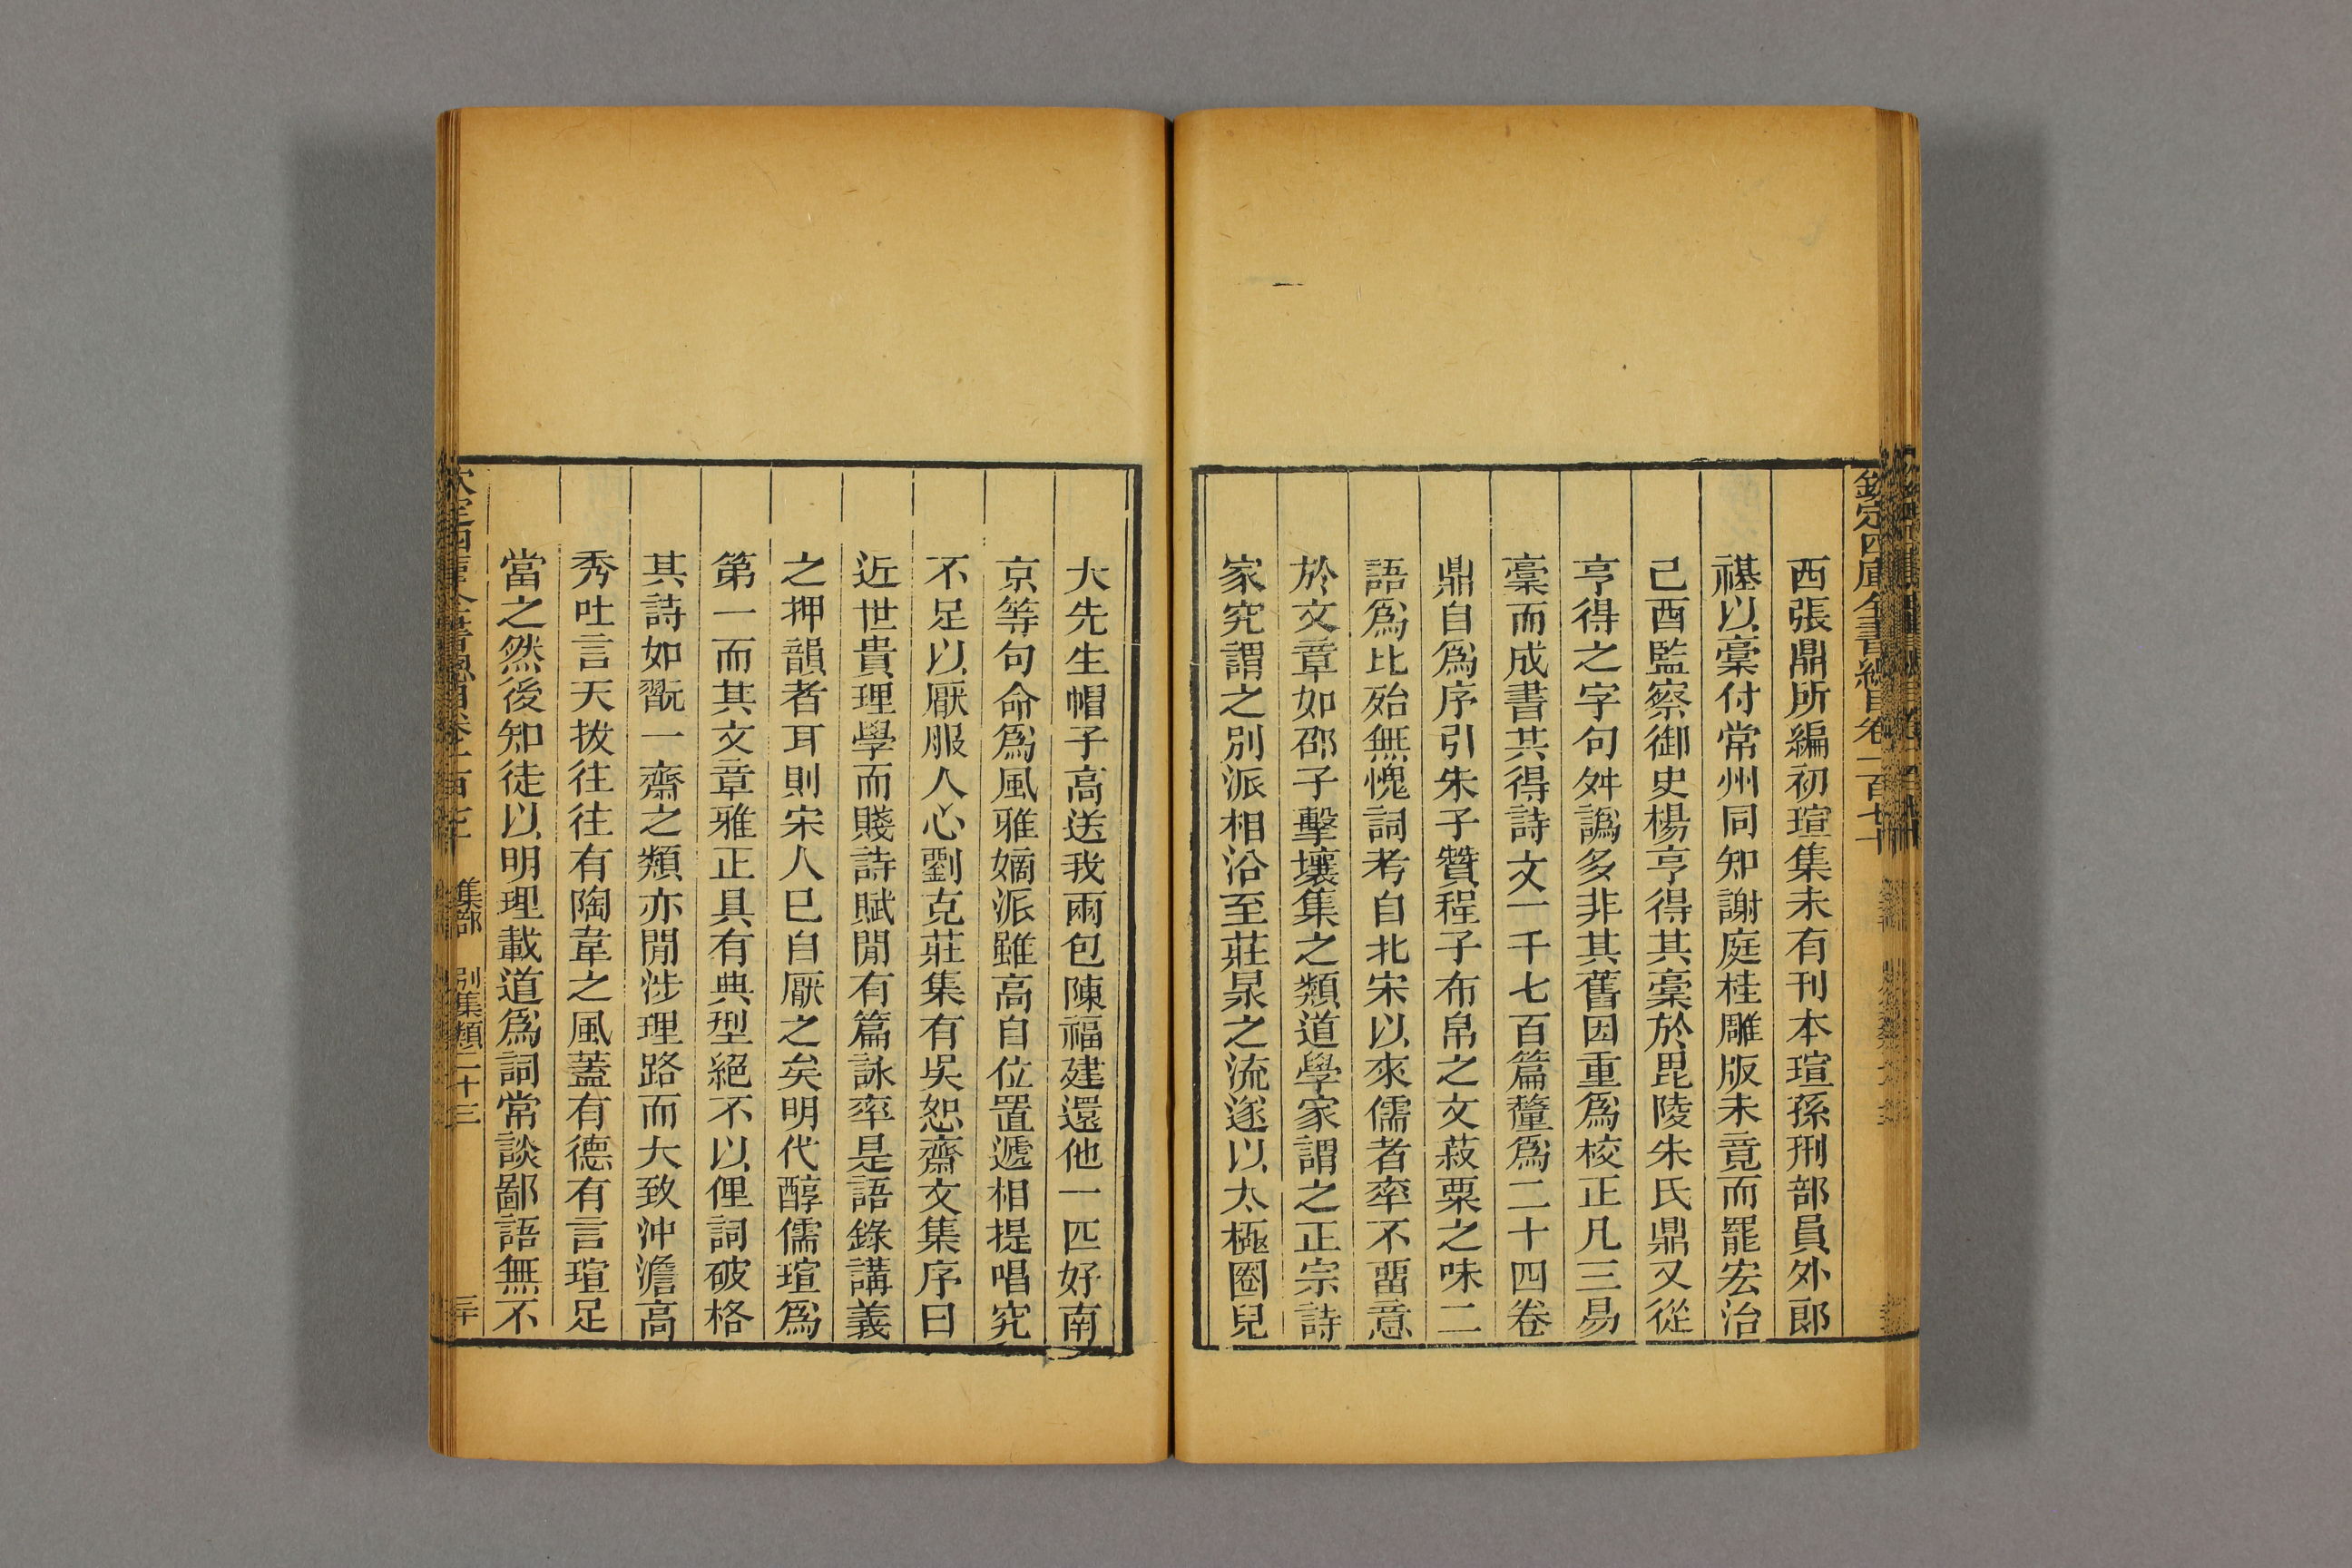 欽定四庫全書總目卷一百七十
西張鼎所編初瑄集未有刊本瑄孫刑部員外郎
禥以稾付常州同知謝庭桂雕版未竟而罷宏治
己酉監察御史楊亨得其稾於毘陵朱氏鼎又從
亨得之字句舛譌多非其舊因重爲校正凡三易
稾而成書共得詩文一千七百篇釐爲二十四卷
鼎自爲序引朱子贊程子布帛之文菽粟之味二
語爲比殆無愧詞考自北宋以來儒者率不畱意
於文章如邵子擊壤集之類道學家謂之正宗詩
家究謂之別派相沿至莊㫤之流遂以太極圈兒
大先生帽子高送我兩包陳福建還他一匹好南
京等句命爲風雅嫡派雖高自位置遞相提唱究
不足以厭服人心劉克莊集有吳恕齋文集序曰
近世貴理學而賤詩賦閒有篇詠率是語錄講義
之押韻者耳則宋人已自厭之矣明代醇儒瑄爲
第一而其文章雅正具有典型絕不以俚詞破格
其詩如翫一齋之類亦閒涉理路而大致沖澹高
秀吐言天拔往往有陶韋之風蓋有德有言瑄足
當之然後知徒以明理載道爲詞常談鄙語無不
集部 別集類二十三